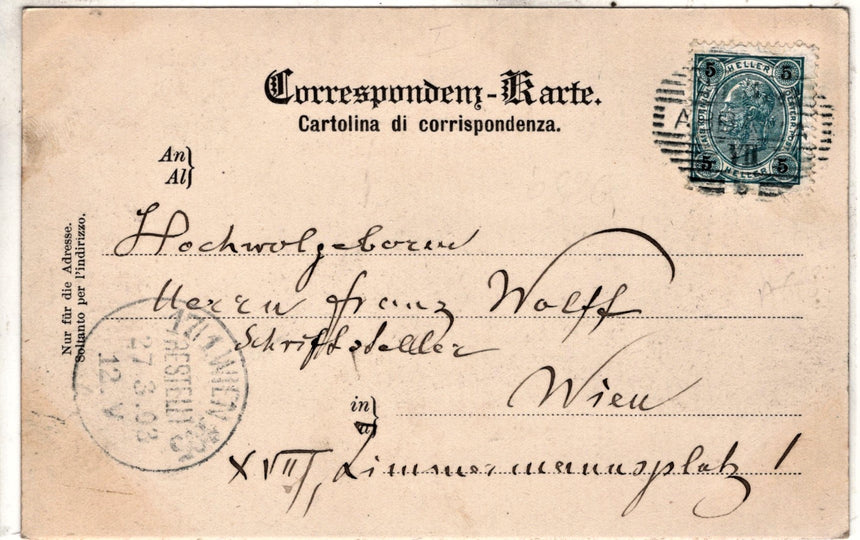 Correspondenz-Karte.
Cartolina di corrispondenza.
5 HELLER 5
5 HELLER 5
VII
An
Al
Hochwolgeboren
Herrn Franz Wolff
Schriftsteller
in
a
Wien
XVII, Zimmermannsplatz 1
Nur für die Adresse.
Soltanto per l'indirizzo.
17/1 WIEN
BESTELLT
27.3.03
12.V